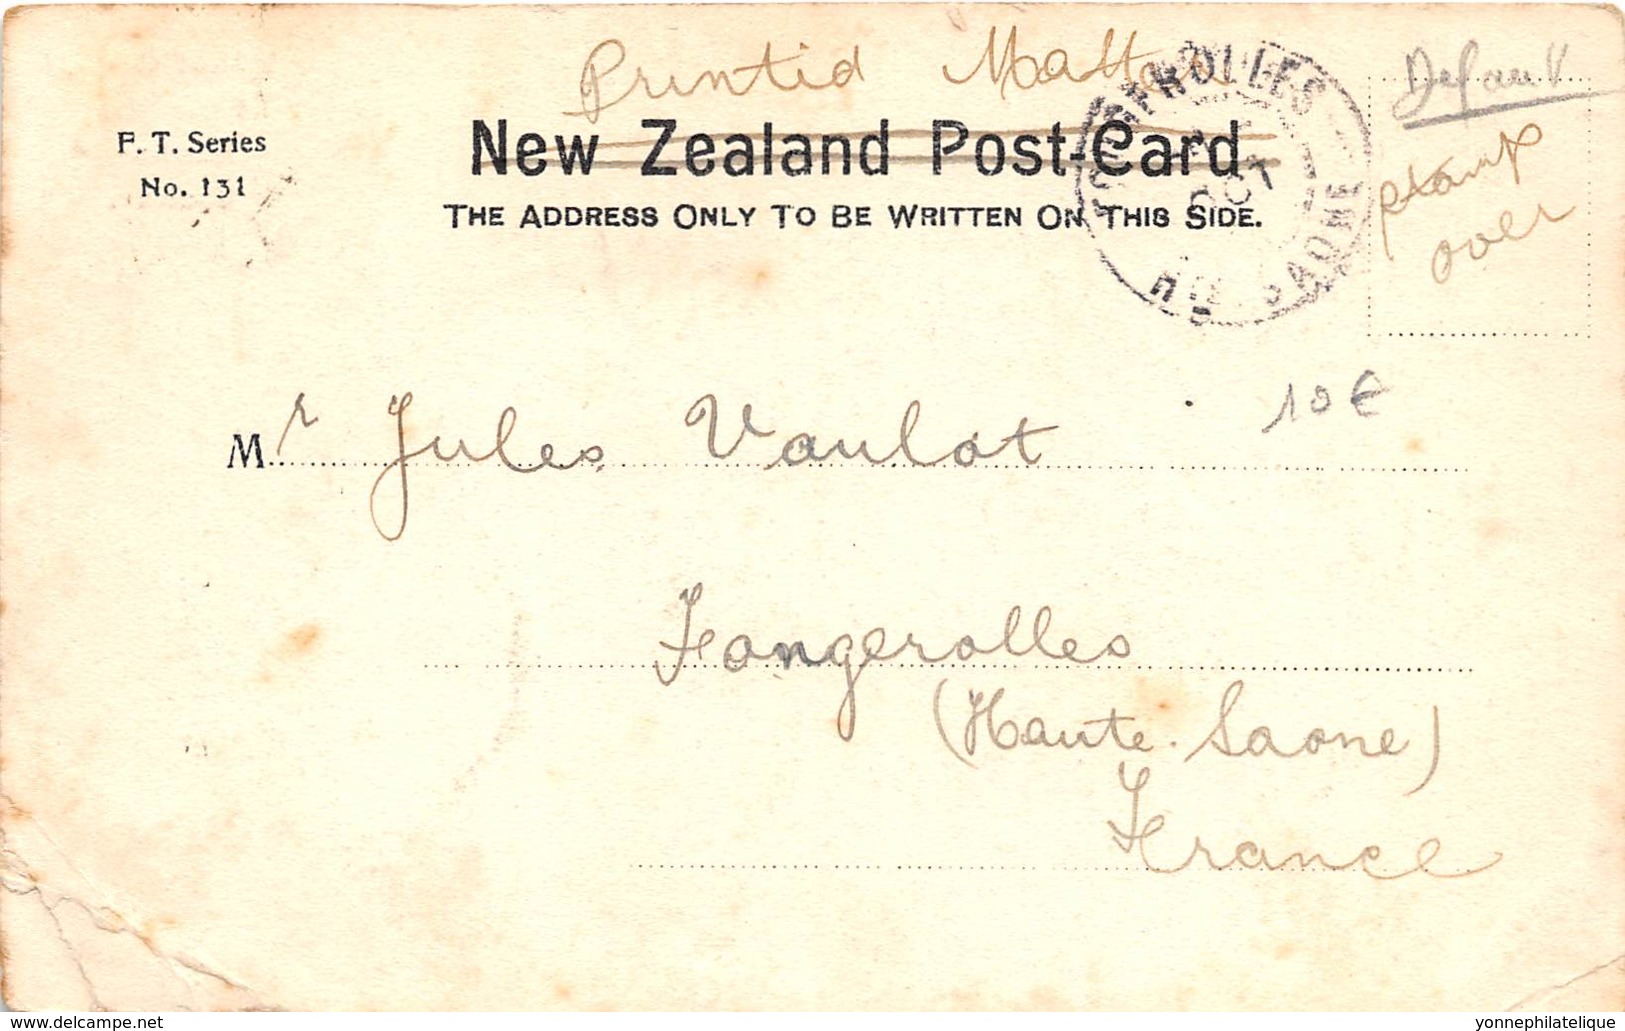 Printid Matter
Defaut
F. T. Series
No. 131
New Zealand Post-Card.
THE ADDRESS ONLY TO BE WRITTEN ON THIS SIDE.
stamp
over
FOUGEROLLES
OCT
HTE SAONE
10€
Mr Jules Vaulot
Fongerolles
(Haute-Saone)
France
www.delcampe.net
yonnephilatelique